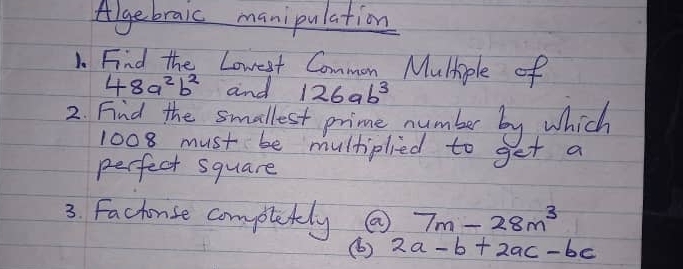 Algebraic manipulation
1. Find the Lowest Common Multiple of
48a²b² and 126ab³
2. Find the smallest prime number by which
1008 must be multiplied to get a
perfect square
3. Factorise completely (a) 7m - 28m³
(b) 2a - b + 2ac - bc